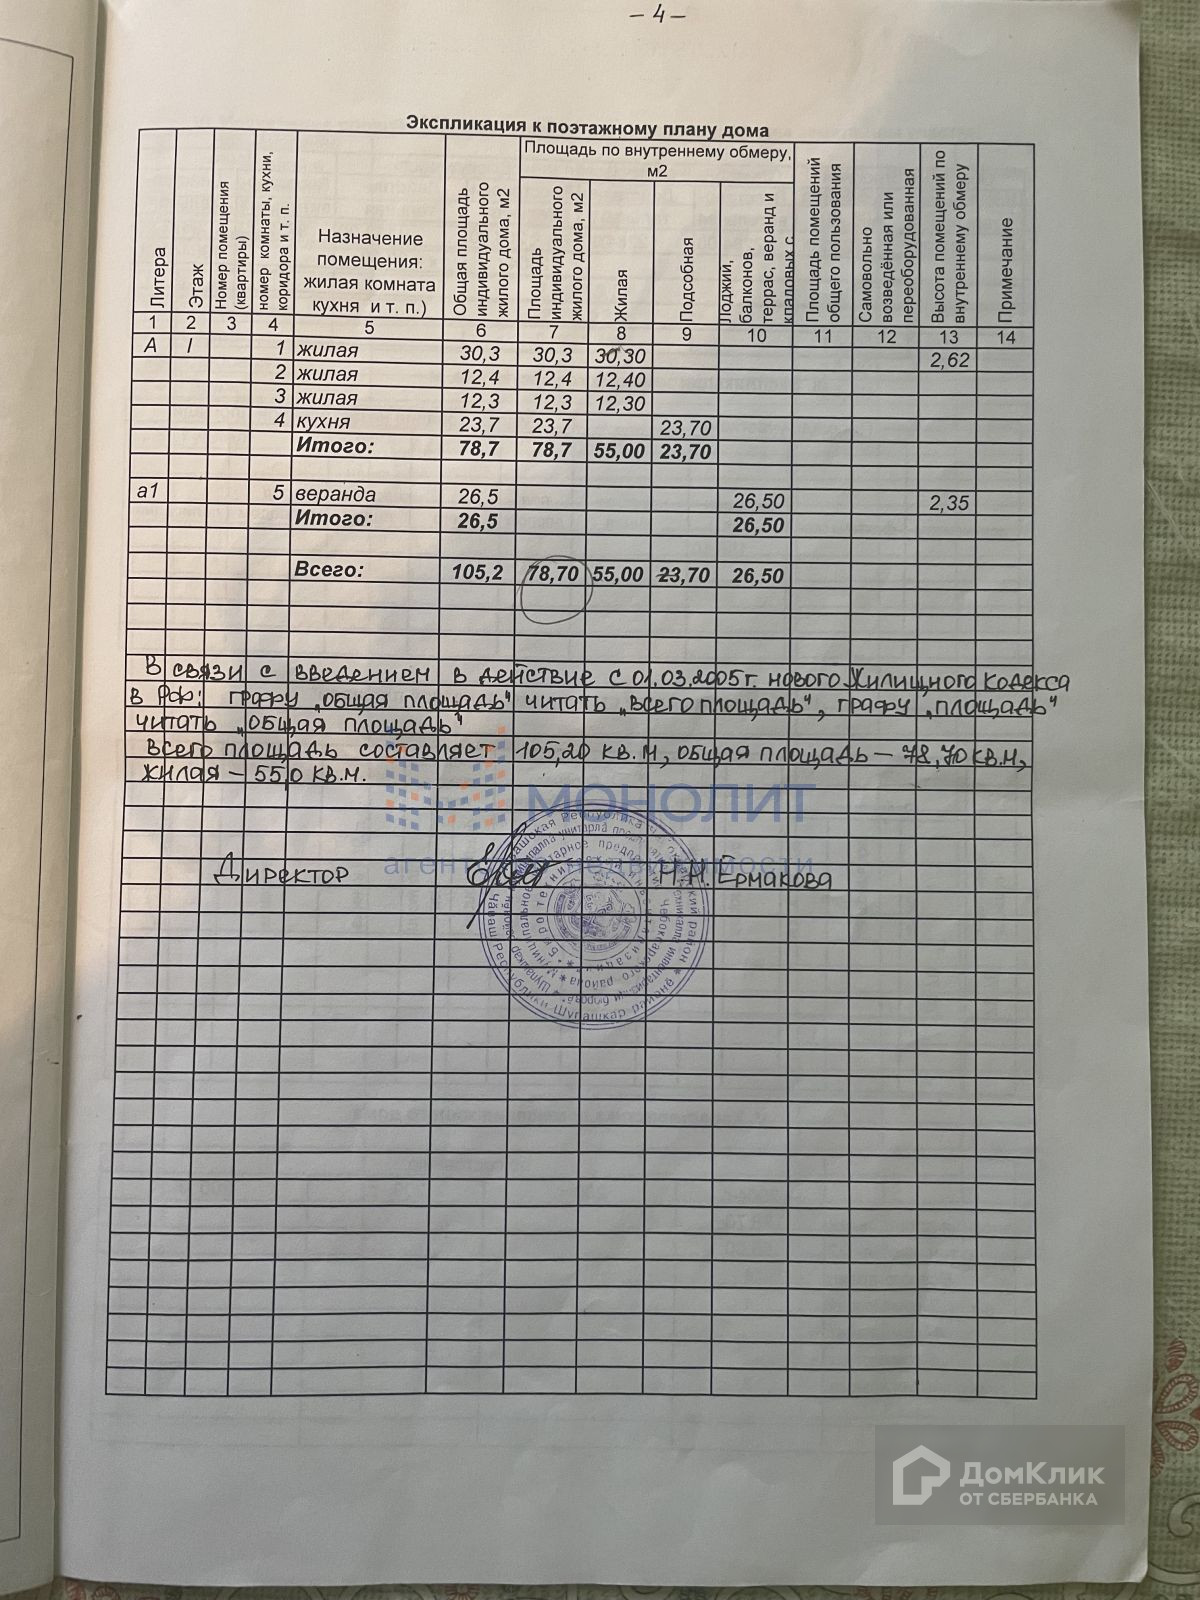 – 4 –
Экспликация к поэтажному плану дома
Литера
Этаж
Номер помещения (квартиры)
номер комнаты, кухни, коридора и т. п.
Назначение помещения: жилая комната кухня и т. п.)
Общая площадь индивидуального жилого дома, м2
Площадь по внутреннему обмеру, м2
Площадь индивидуального жилого дома, м2
Жилая
Подсобная
Лоджии, балконов, террас, веранд и кладовых с
Площадь помещений общего пользования
Самовольно возведённая или переоборудованная
Высота помещений по внутреннему обмеру
Примечание
1 2 3 4 5 6 7 8 9 10 11 12 13 14
А I 1 жилая 30,3 30,3 30,30 2,62
2 жилая 12,4 12,4 12,40
3 жилая 12,3 12,3 12,30
4 кухня 23,7 23,7 23,70
Итого: 78,7 78,7 55,00 23,70
а1 5 веранда 26,5 26,50 2,35
Итого: 26,5 26,50
Всего: 105,2 78,70 55,00 23,70 26,50
В связи с введением в действие с 01.03.2005г. нового Жилищного кодекса
в РФ: графу „общая площадь" читать „всего площадь", графу „площадь"
читать „общая площадь"
Всего площадь составляет 105,20 кв.м, общая площадь – 78,70 кв.м,
жилая – 55,0 кв.м.
МОНОЛИТ
Директор Н.Н. Ермакова
ДомКлик
ОТ СБЕРБАНКА